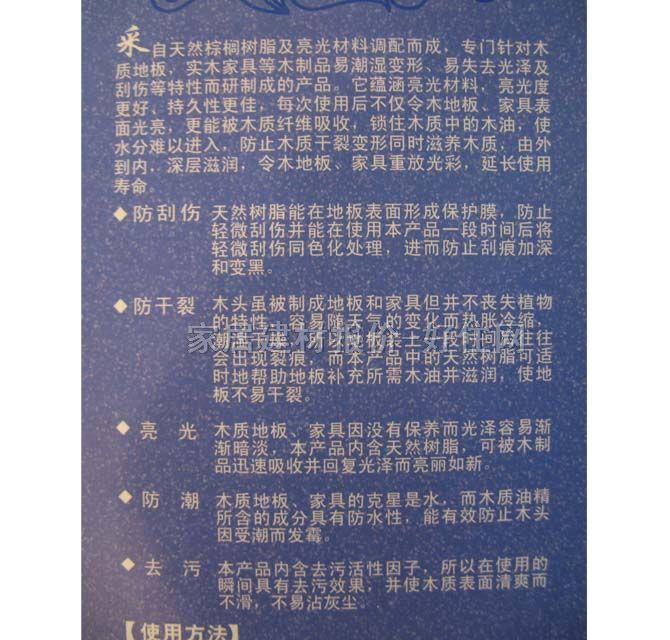 采自天然棕榈树脂及亮光材料调配而成，专门针对木
质地板，实木家具等木制品易潮湿变形、易失去光泽及
刮伤等特性而研制成的产品。它蕴涵亮光材料，亮光度
更好、持久性更佳，每次使用后不仅令木地板、家具表
面光亮，更能被木质纤维吸收，锁住木质中的木油，使
水分难以进入，防止木质干裂变形同时滋养木质，由外
到内，深层滋润，令木地板、家具重放光彩，延长使用
寿命。
◆防刮伤 天然树脂能在地板表面形成保护膜，防止
轻微刮伤并能在使用本产品一段时间后将
轻微刮伤同色化处理，进而防止刮痕加深
和变黑。
◆防干裂 木头虽被制成地板和家具但并不丧失植物
的特性，容易随天气的变化而热胀冷缩，
潮品干裂，所以地板装上一段时间后往往
会出现裂痕，而本产品中的天然树脂可适
时地帮助地板补充所需木油并滋润，使地
板不易干裂。
◆亮光 木质地板、家具因没有保养而光泽容易渐
渐暗淡，本产品内含天然树脂，可被木制
品迅速吸收并回复光泽而亮丽如新。
◆防潮 木质地板、家具的克星是水，而木质油精
所含的成分具有防水性，能有效防止木头
因受潮而发霉。
◆去污 本产品内含去污活性因子，所以在使用的
瞬间具有去污效果，并使木质表面清爽而
不滑，不易沾灰尘。
【使用方法】